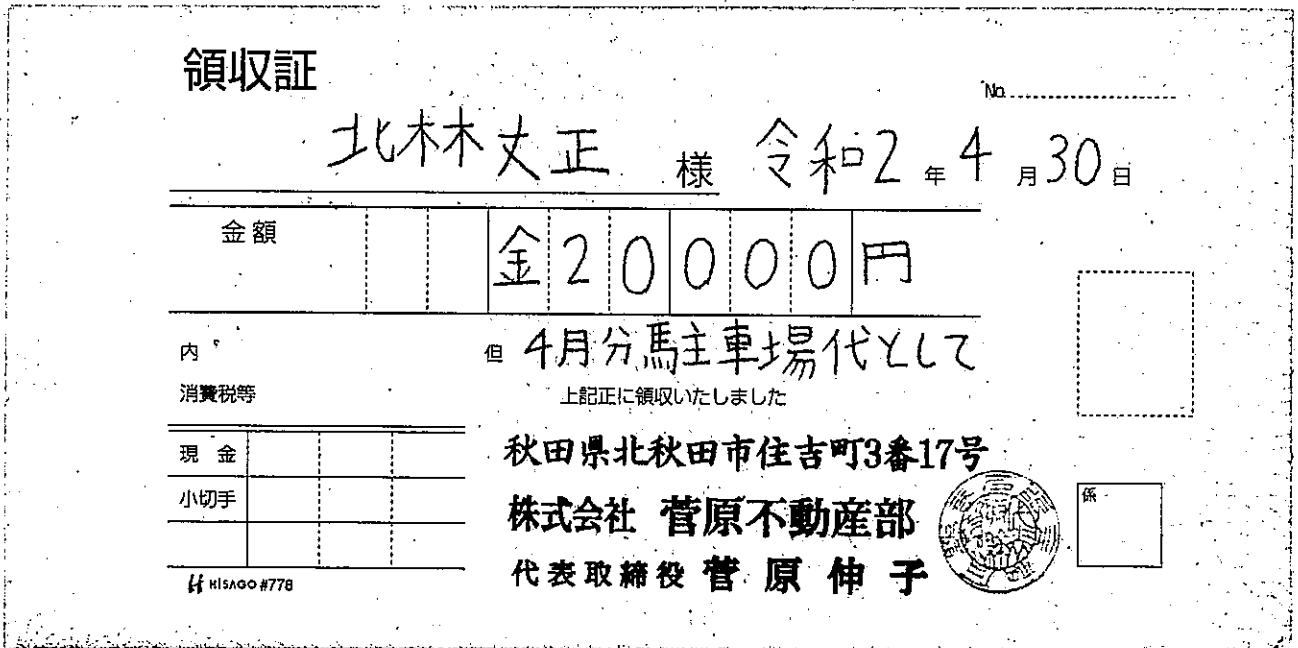 領収証
No.
北林丈正 様 令和2年4月30日
金額 金20000円
内 但 4月分駐車場代として
消費税等 上記正に領収いたしました
現金
小切手
秋田県北秋田市住吉町3番17号
株式会社 菅原不動産部
代表取締役 菅原伸子
係
HISAGO #778